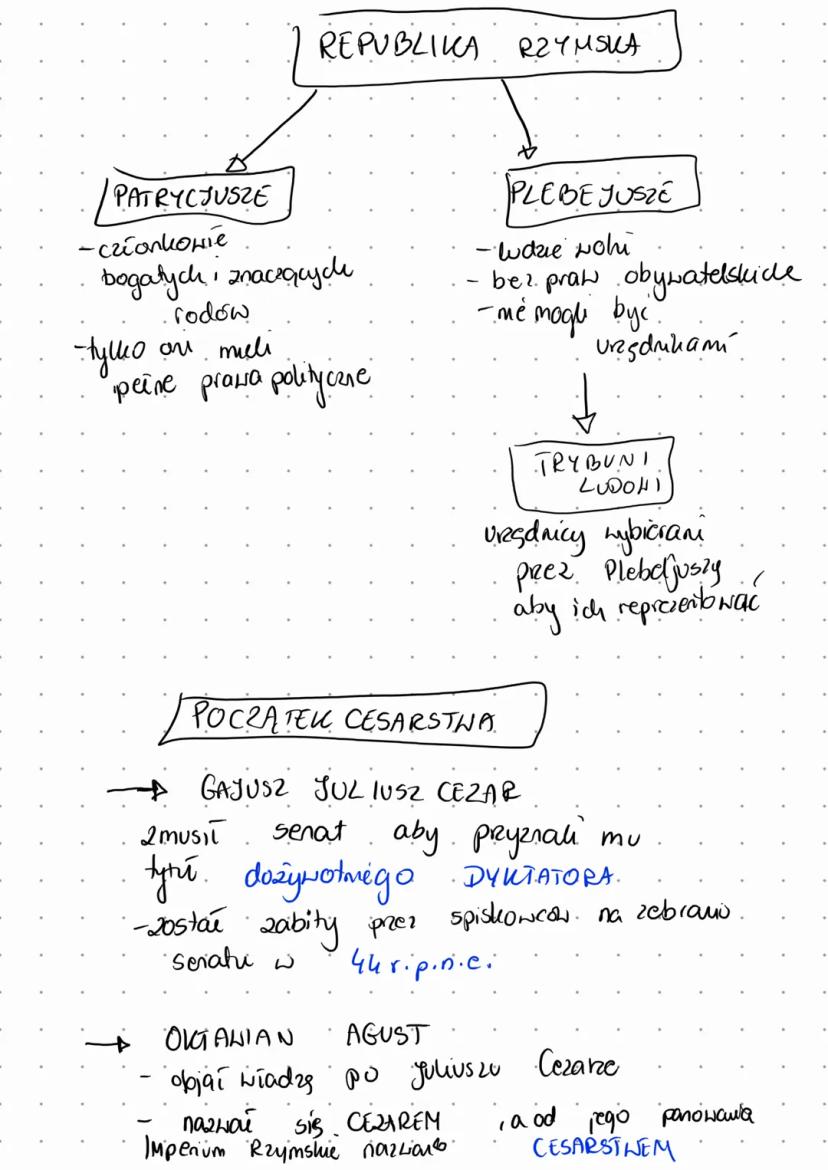 REPUBLIKA RZYMSKA
PATRYCJUSZE
- członkowie
bogatych i znaczących
rodów
- tylko oni mieli
pełne prawa polityczne
PLEBEJUSZE
- ludzie wolni
- bez praw obywatelskich
- nie mogli być
urzędnikami
TRYBUNI
LUDOWI
urzędnicy wybierani
przez Plebejuszy
aby ich reprezentować
POCZĄTEK CESARSTWA
→ GAJUSZ JULIUSZ CEZAR
zmusił senat aby przyznali mu
tytuł dożywotniego DYKTATORA
- został zabity przez spiskowców na zebraniu
senatu w 44 r.p.n.e.
→ OKTAWIAN AGUST
- objął władzę po Juliuszu Cezarze
- nazwał się CEZAREM, a od jego panowania
Imperium Rzymskie nazwano CESARSTWEM